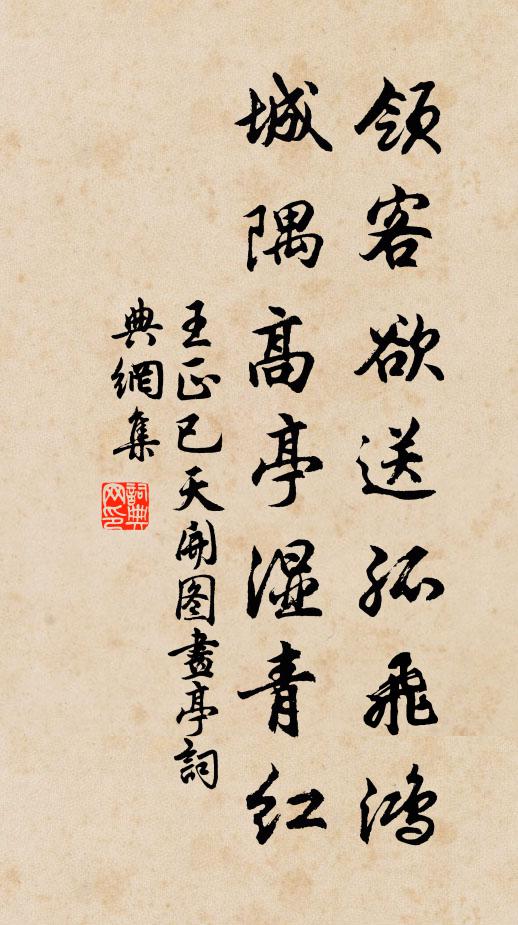 领客欲送孤飞鸿
城隅高亭湿青红
王正己天开图畫亭詞
典網集
詞典网印